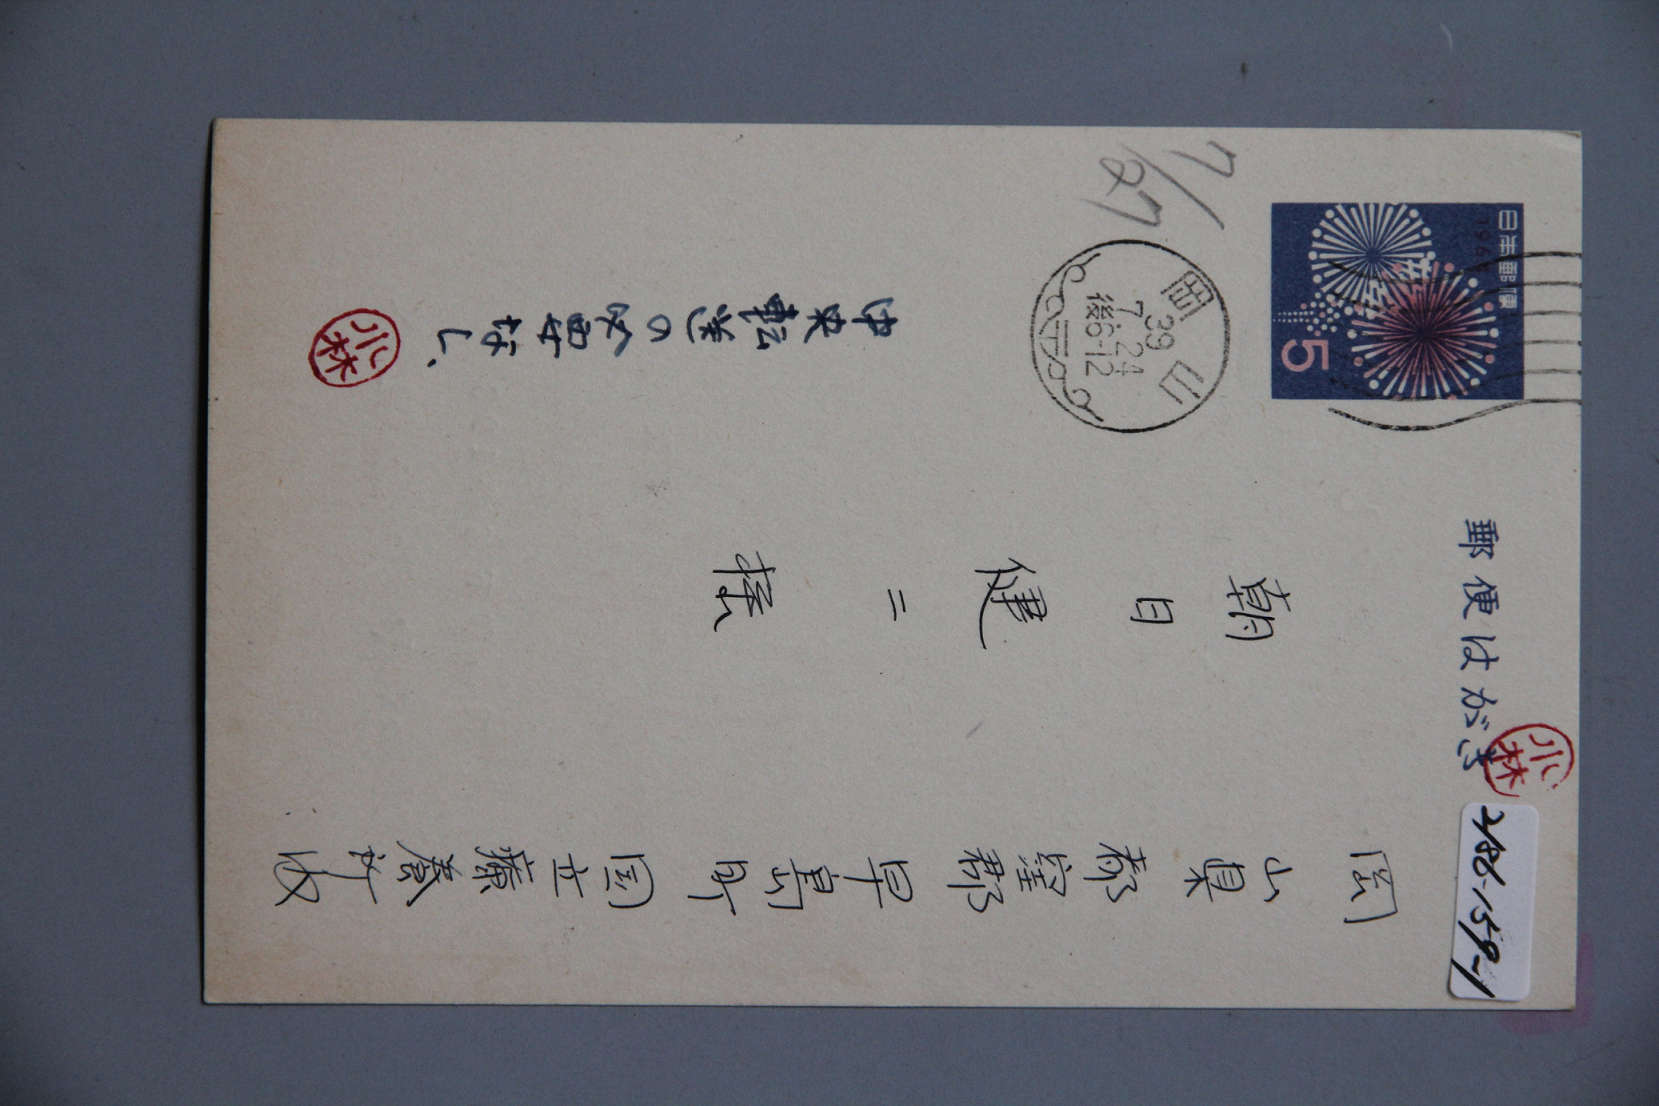 日本郵便
1964
5
郵便はがき
小林
2486-159-1
7/27
岡山
39
7.24
後6-12
岡山県都窪郡早島町国立療養所内
朝日健二様
中央転送の必要なし、
小林